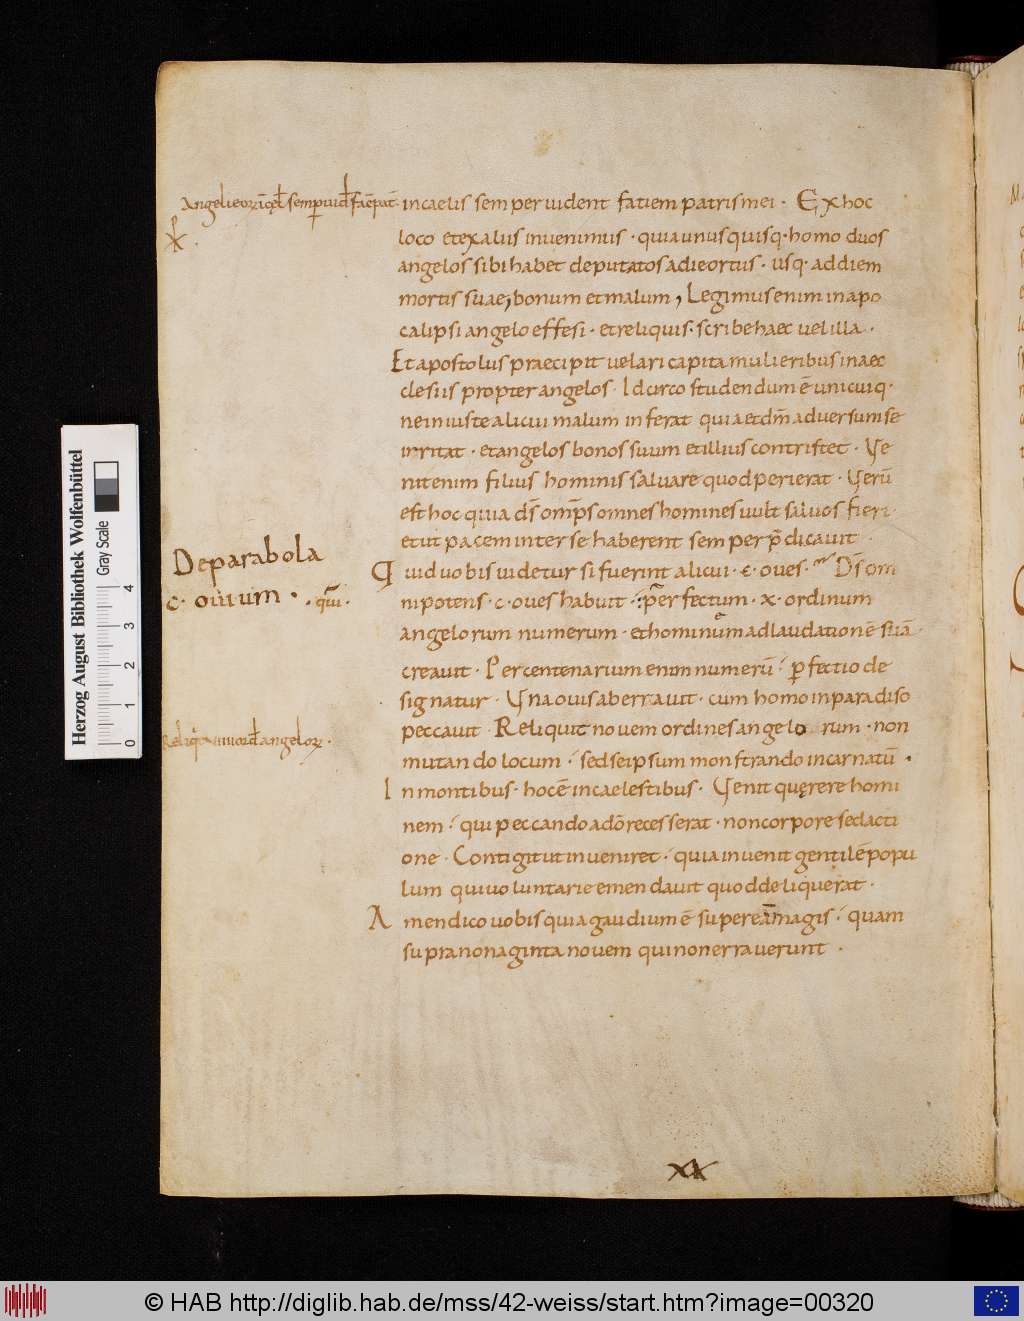 Angeli eorū i cęł semp uidt facē pat̄
incaelis semper uident fatiem patris mei · Ex hoc
loco et ex aliis inuenimus · quia unus quisq· homo duos
angelos sibi habet deputatos a die ortus · usq· ad diem
mortis suae, bonum et malum, Legimus enim in apo
calipsi angelo effesi · et reliquis· scribe haec uel illa ·
Et apostolus praecipit uelari capita mulieribus in aec
clesiis propter angelos · Idcirco studendum ē unicuiq·
ne iniuste alicui malum inferat quia et dm̄ aduersum se
irritat · et angelos bonos suum et illius contristet · Ve
nit enim filius hominis saluare quod perierat · Verū
est hoc quia ds̄ omps̄ omnes homines uult saluos fieri·
et ut pacem inter se haberent semper p̄dicauit ·
De parabola
c· ouium · · qm̄ ·
Quid uobis uidetur si fuerint alicui · c· oues · Ds̄ om
nipotens · c· oues habuit · perfectum · x· ordinum
angelorum numerum · et hominum ad laudationē suā ·
creauit · Per centenarium enim numerū perfectio de
signatur · Vna ouis aberrauit · cum homo in paradiso
peccauit · Reliquit nouem ordines angelorum · non
mutando locum · sed se ipsum monstrando incarnatū ·
In montibus · hoc ē in caelestibus · Venit quęrere homi
nem qui peccando a dō recesserat · non corpore sed acti
one · Contigit ut inueniret · quia inuenit gentilē popu
lum qui uoluntarie emendauit quod deliquerat ·
Amen dico uobis quia gaudium ē super eam magis quam
supra nonaginta nouem qui non errauerunt ·
Herzog August Bibliothek Wolfenbüttel
Gray Scale
0 1 2 3 4
© HAB http://diglib.hab.de/mss/42-weiss/start.htm?image=00320